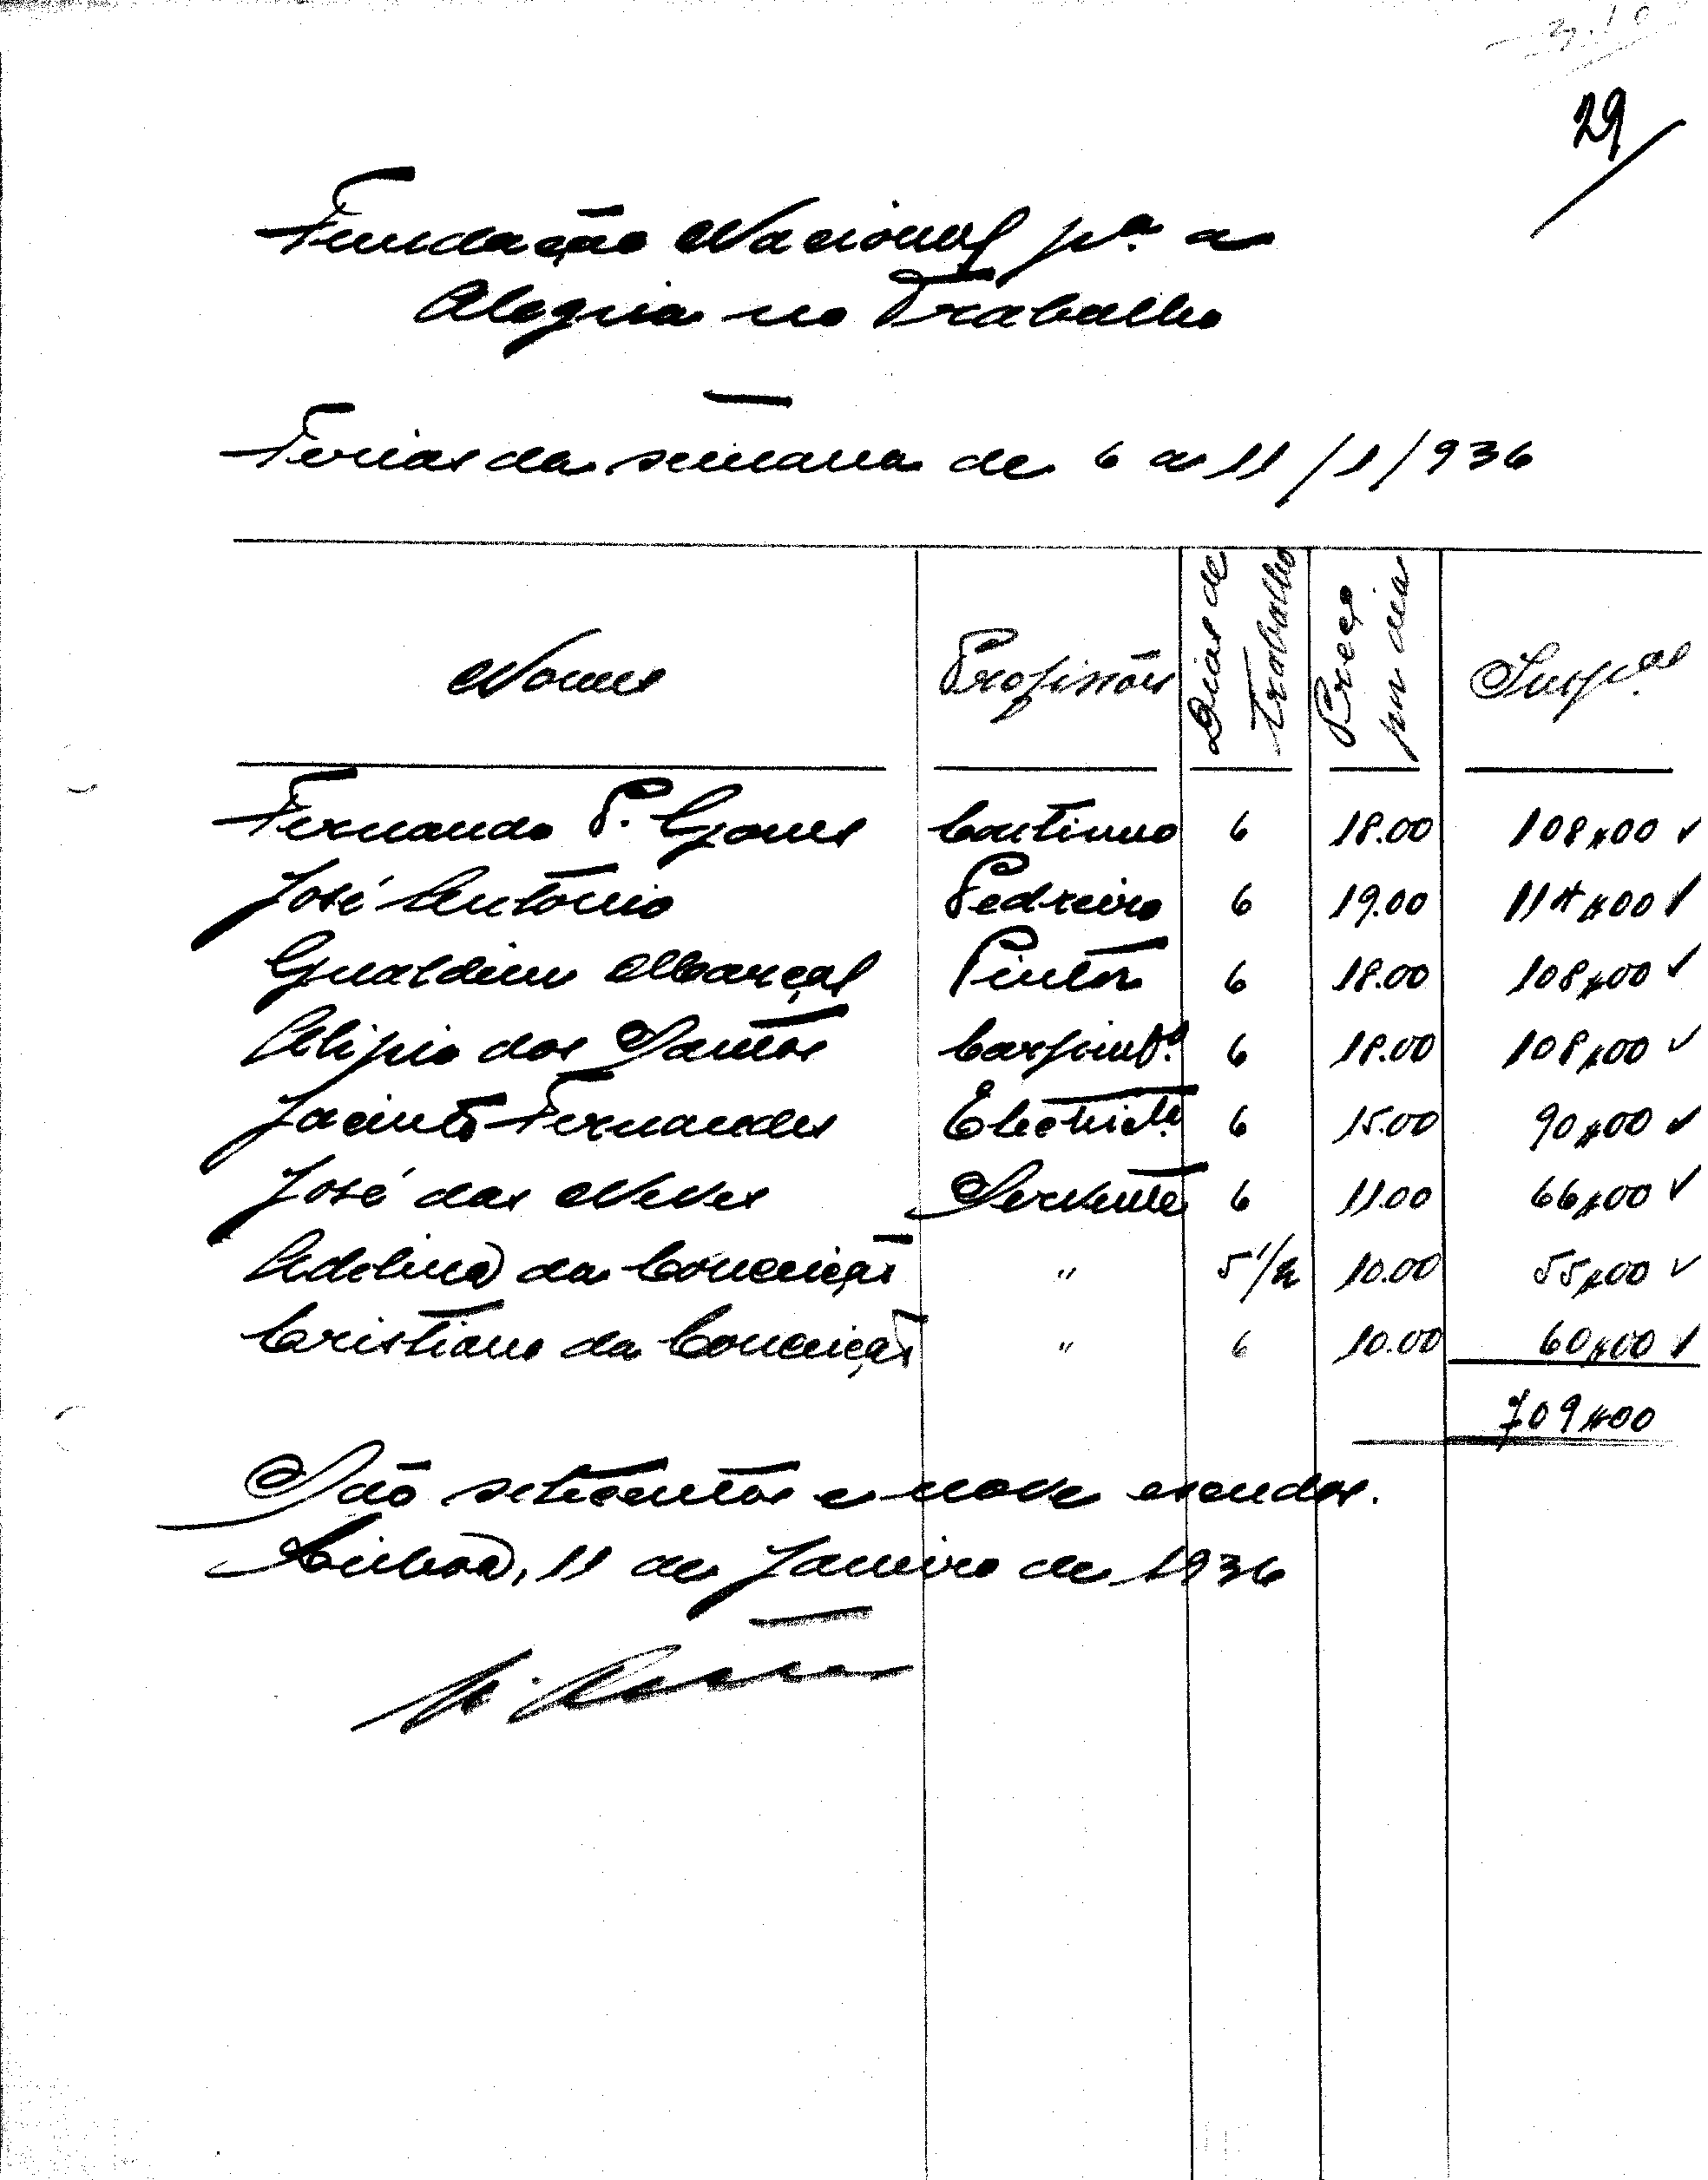 29
Fundação Nacional pª a
Alegria no Trabalho
Ferias da semana de 6 a 11/1/936
Nomes Profissões Dias de trabalho Preço por dia Imp.as
Fernando P. Gomes Contínuo 6 18.00 108$00
José António Pedreiro 6 19.00 114$00
Gualdim Marçal Pintor 6 18.00 108$00
Alipio dos Santos Carpintº 6 18.00 108$00
Jacinto Fernandes Electrictª 6 15.00 90$00
José das Neves Servente 6 11.00 66$00
Adelina da Conceição " 5 1/2 10.00 55$00
Cristiano da Conceição " 6 10.00 60$00
709$00
São setecentos e nove escudos.
Lisboa, 11 de Janeiro de 1936